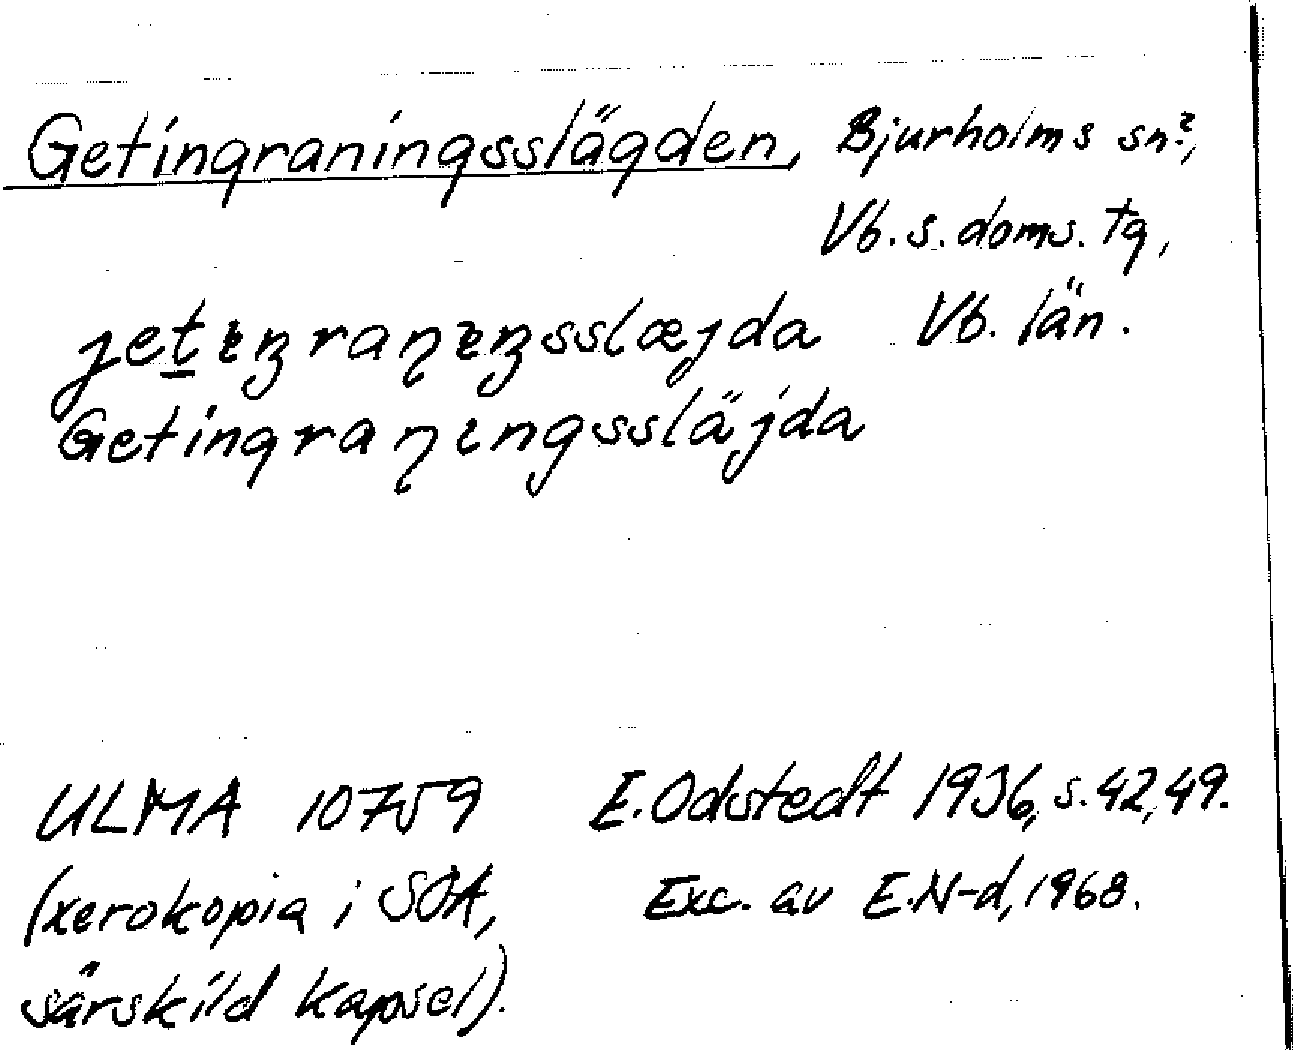 Getingraningsslägden, Bjurholms sn?,
Vb. s. doms. tg,
Vb. län.
Getingraningssläjda
ULMA 10759 E. Odstedt 1936, s. 42, 49.
(xerokopia i SOA, Exc. av E. N-d, 1968.
särskild kapsel).